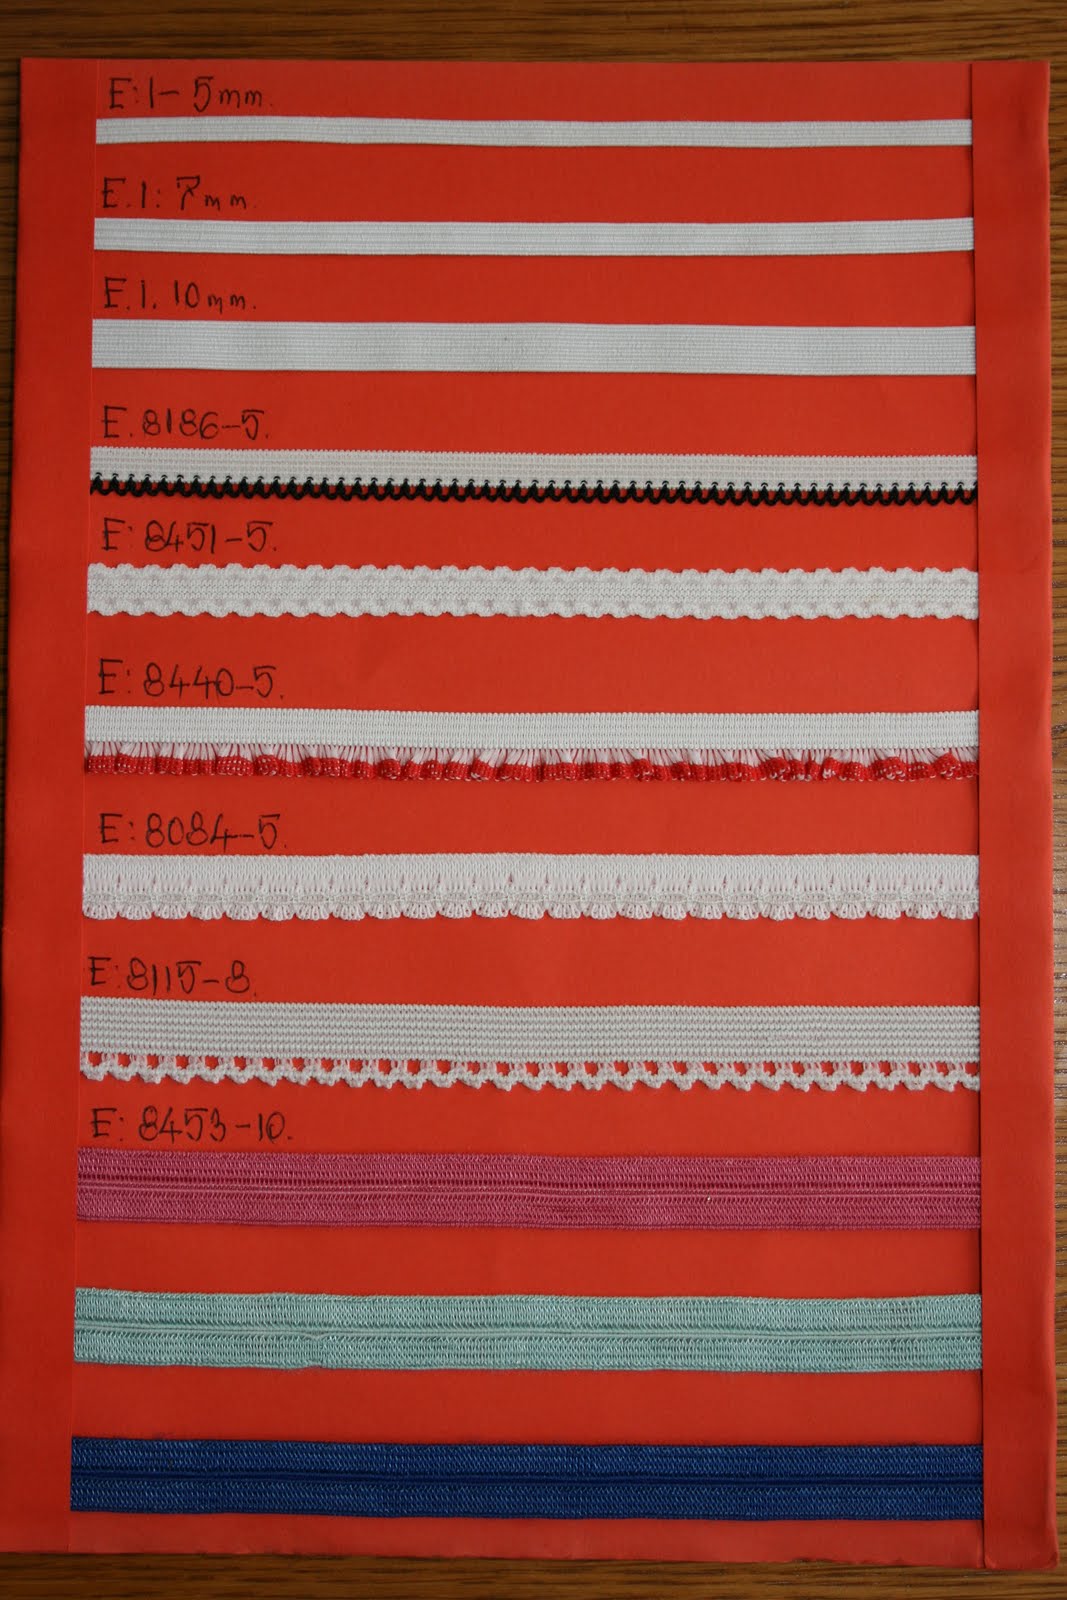 E:1-5mm.
E.1:7mm.
E.1.10mm.
E.8186-5.
E:8451-5.
E:8440-5.
E:8084-5.
E:8115-8.
E:8453-10.